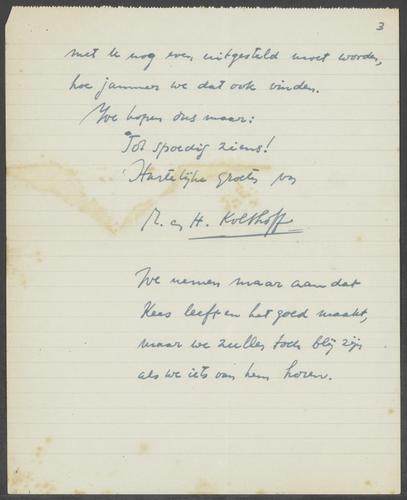 3
met U nog even uitgesteld moet worden,
hoe jammer we dat ook vinden.
We hopen dus maar:
Tot spoedig ziens!
Hartelijke groeten van
R. en H. Kolthoff
We nemen maar aan dat
Kees leeft en het goed maakt,
maar we zullen toch blij zijn
als we iets van hem horen.